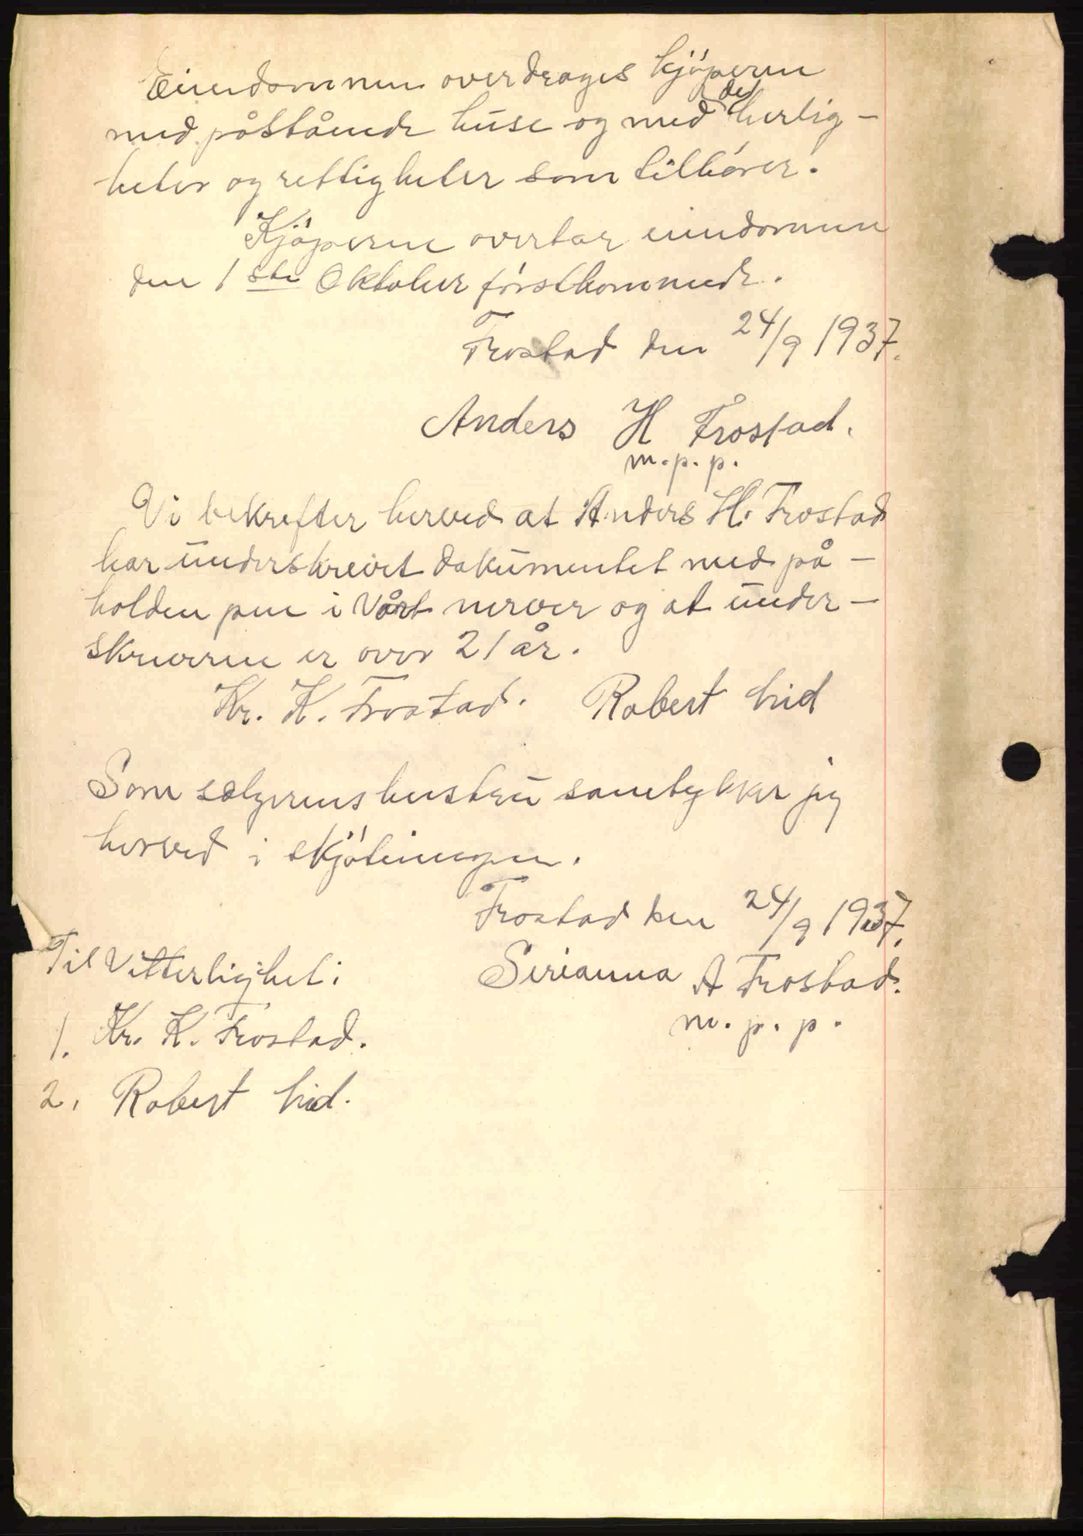 Eiendommen overdrages kjøperen
med påstående huse og med de herlig-
heter og rettigheter som tilhører.
Kjøperen overtar eiendommen
den 1ste Oktober førstkommende.
Frostad den 24/9 1937.
Anders H Frostad.
m.p.p.
Vi bekrefter herved at Anders H. Frostad
har underskrevet dokumentet med på-
holden pen i vårt nerver og at under-
skriveren er over 21 år.
Kr. K. Frostad. Robert Lied
Som selgerens hustru samtykker jeg
herved i skjøtningen.
Frostad den 24/9 1937.
Til Vitterlighet: Serianna A Frostad.
m.p.p.
1. Kr. K. Frostad.
2. Robert Lied.